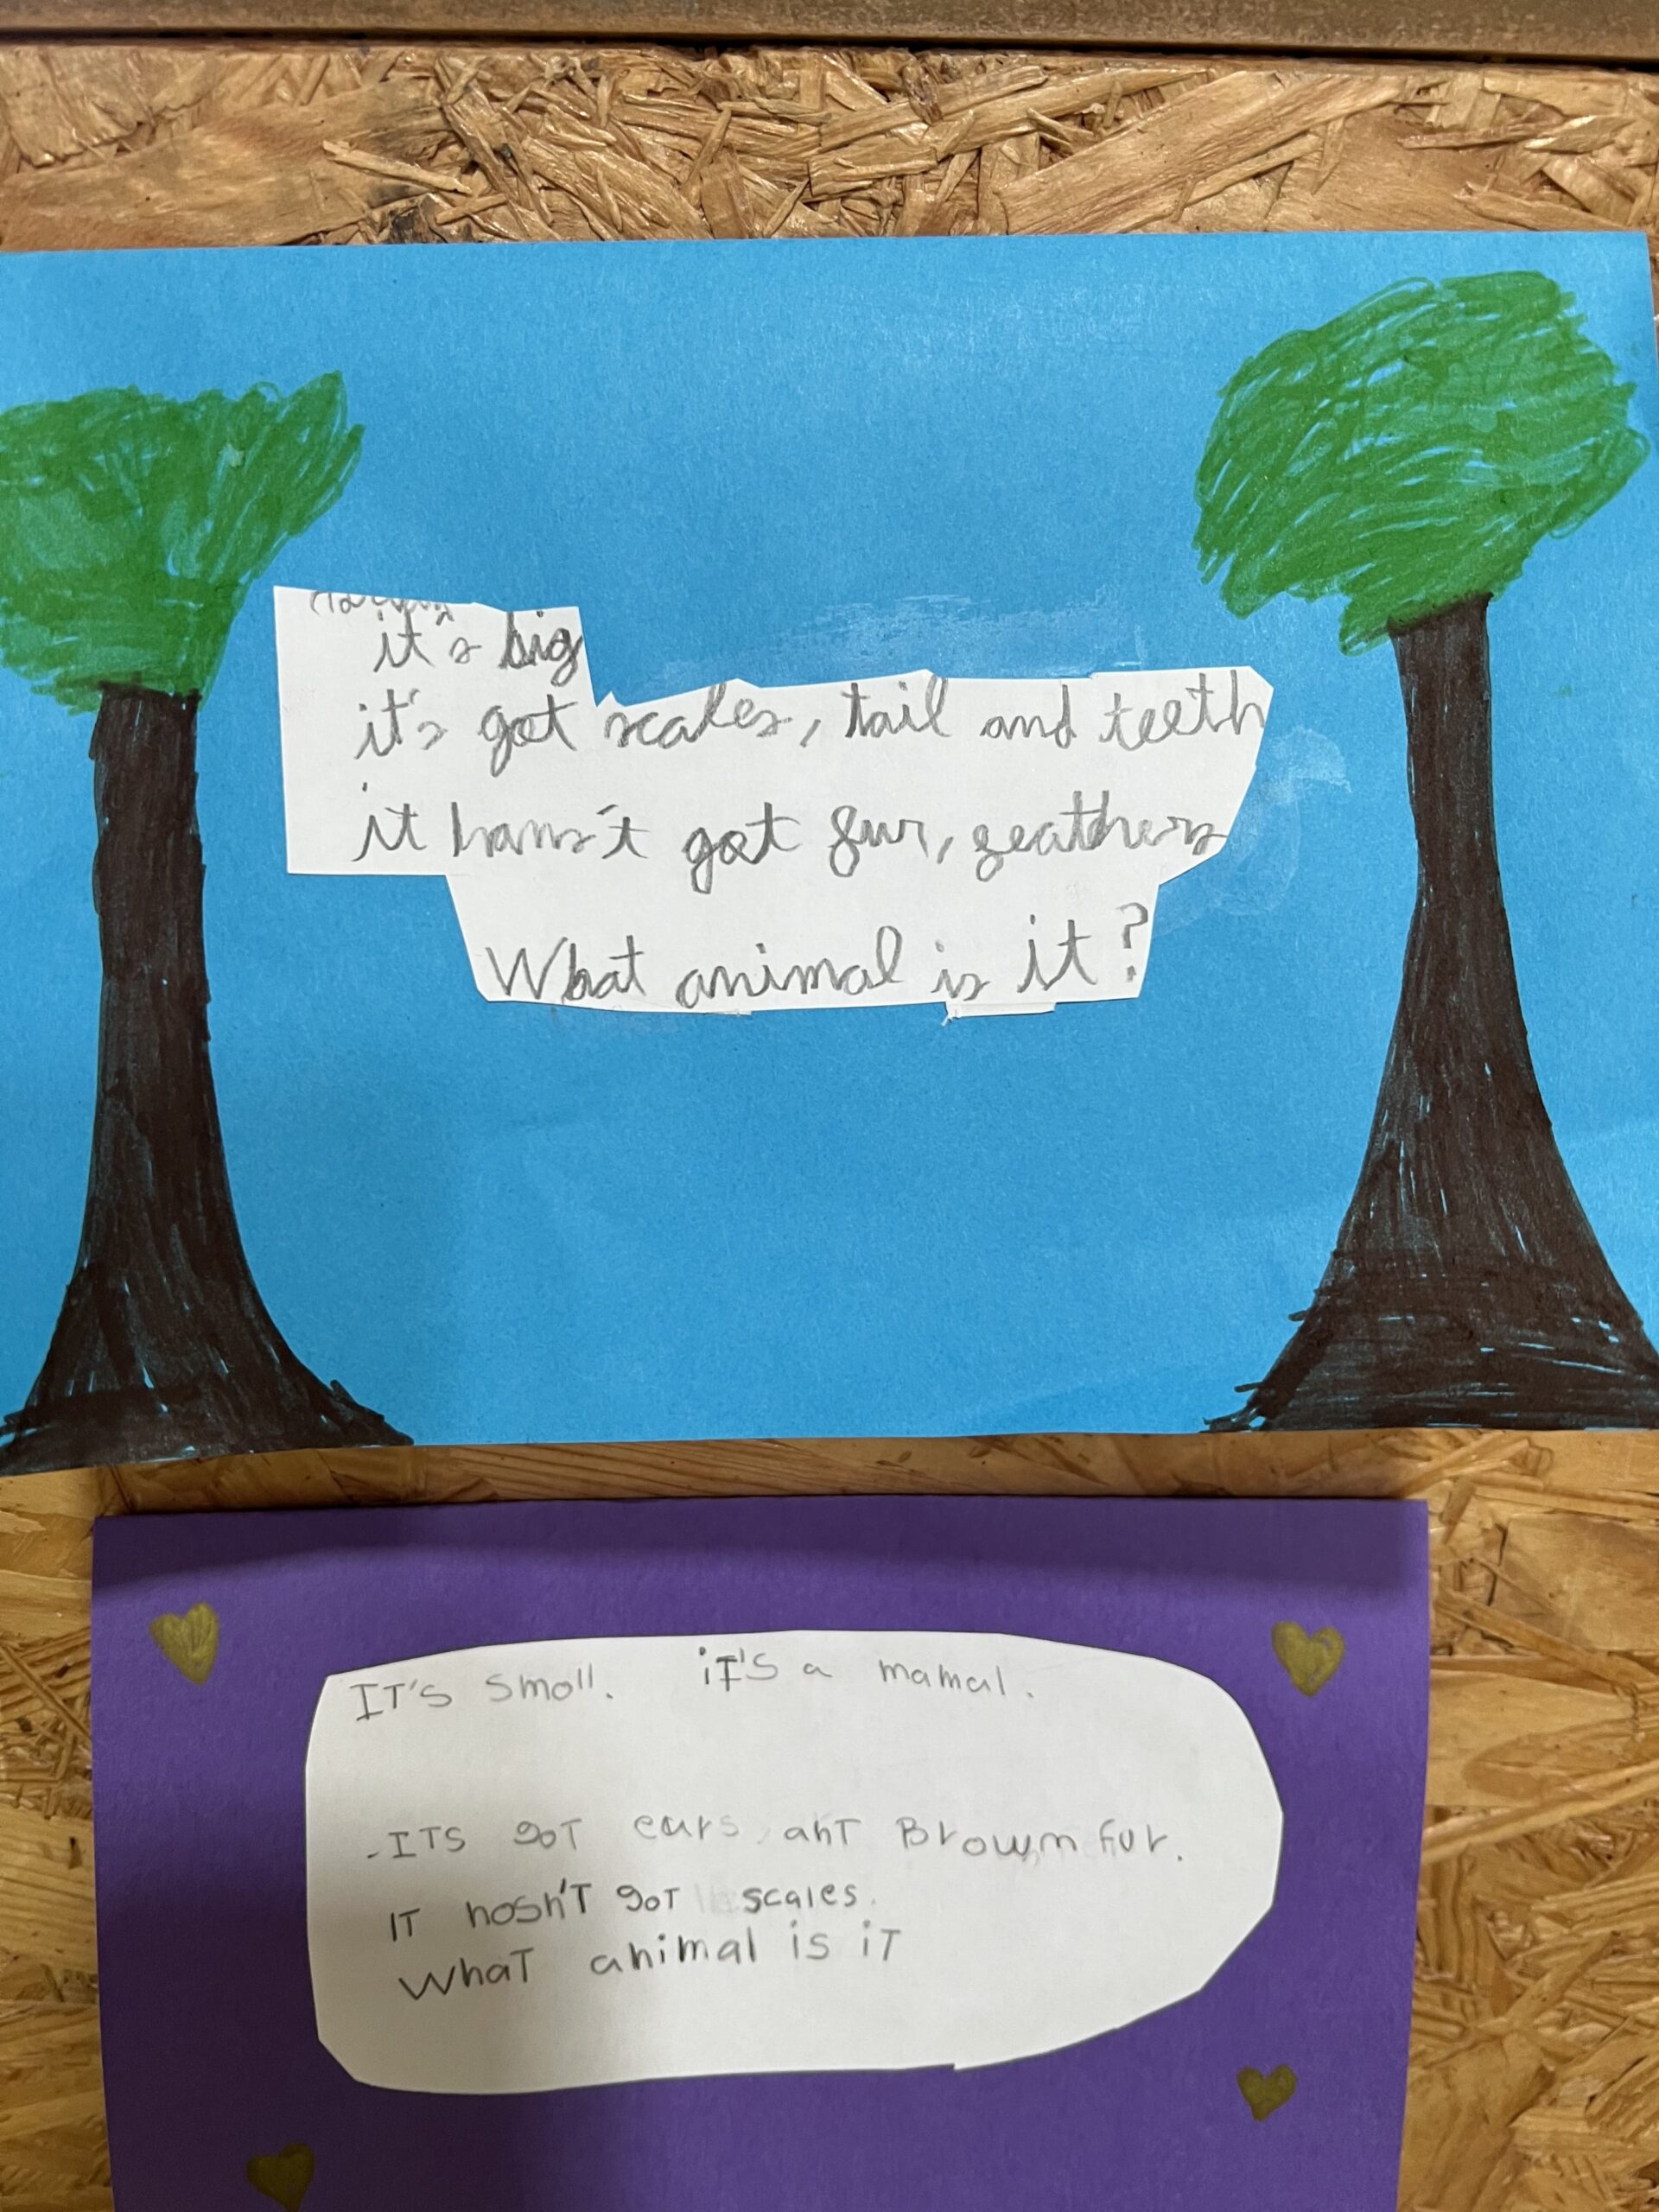 it's big
it's got scales, tail and teeth
it hans't got fur, feathers
What animal is it?
IT'S smoll. iT'S a mamal.
-ITS goT ears, anT Brown fur.
IT hosn'T goT scales.
WhaT animal is iT